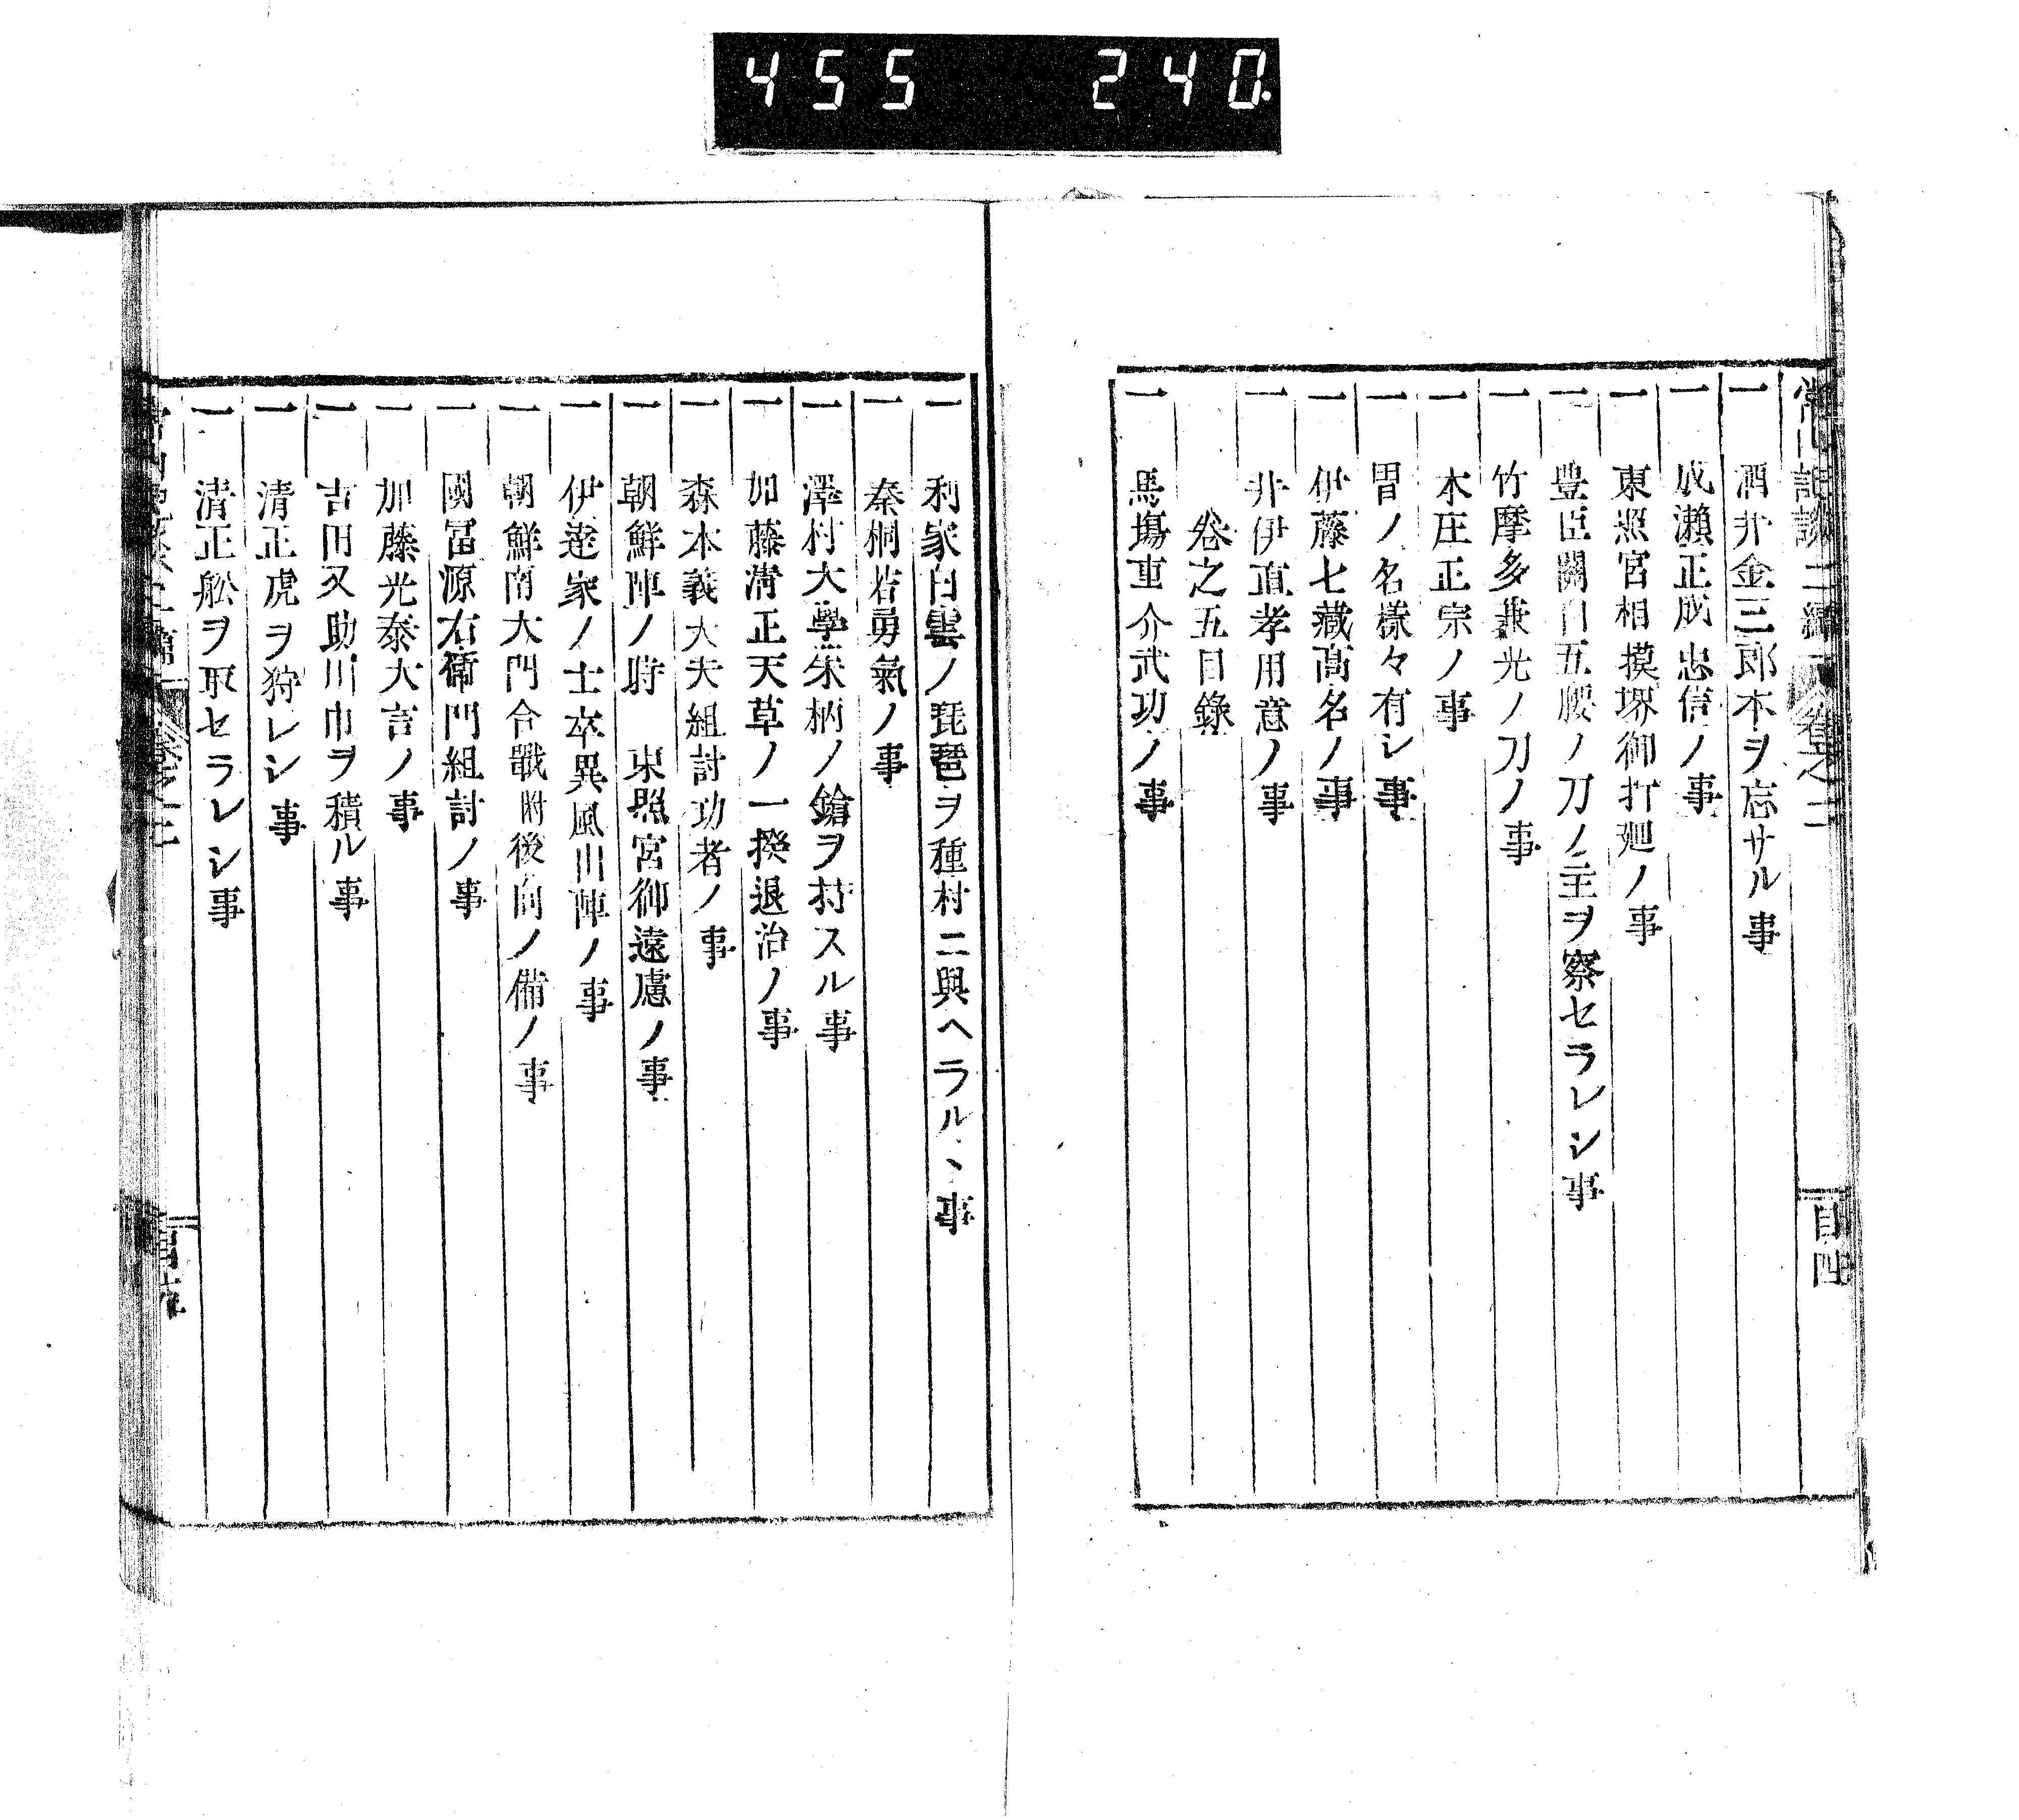 455 240.
一 酒井金三郎本ヲ忘サル事
一 成瀨正成忠信ノ事
一 東照宮相摸堺御打廻ノ事
一 豊臣關白五腰ノ刀ノ主ヲ察セラレシ事
一 竹摩多兼光ノ刀ノ事
一 本庄正宗ノ事
一 冑ノ名樣々有シ事
一 伊藤七藏高名ノ事
一 井伊直孝用意ノ事
卷之五目錄
一 馬塲重介武功ノ事
一 利家白雲ノ琵琶ヲ種村ニ與ヘラルヽ事
一 秦桐若勇氣ノ事
一 澤村大學朱柄ノ鎗ヲ持スル事
一 加藤淸正天草ノ一揆退治ノ事
一 森本義大夫組討功者ノ事
一 朝鮮陣ノ時 東照宮御遠慮ノ事
一 伊達家ノ士卒異風出陣ノ事
一 朝鮮南大門合戰附後向ノ備ノ事
一 國冨源右衞門組討ノ事
一 加藤光泰大言ノ事
一 吉田又助川巾ヲ積ル事
一 清正虎ヲ狩レシ事
一 清正舩ヲ取セラレシ事